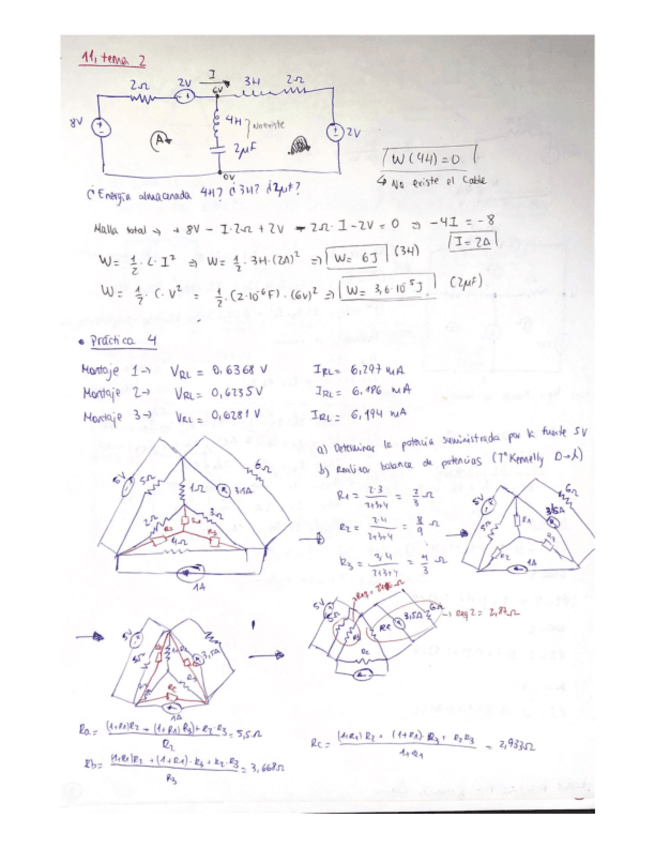 11, tema 2
2Ω 2V I 6V 3H 2Ω
8V A 4H No existe 2µF 2V
0V
W(4H) = 0
↳ No existe el cable
¿Energía almacenada 4H? ¿3H? ¿2µF?
Malla total → + 8V - I·2Ω + 2V - 2Ω·I - 2V = 0 ⇒ -4I = -8
I = 2A
W = 1/2 · L · I² ⇒ W = 1/2 · 3H · (2A)² ⇒ W = 6J (3H)
W = 1/2 · C · V² = 1/2 · (2·10⁻⁶F) · (6V)² ⇒ W = 3,6·10⁻⁵J (2µF)
• Práctica 4
Montaje 1 → VRL = 0,6368 V IRL = 6,297 mA
Montaje 2 → VRL = 0,6235 V IRL = 6,186 mA
Montaje 3 → VRL = 0,6281 V IRL = 6,194 mA
a) Determinar la potencia suministrada por la fuente 5V
b) Realizar balance de potencias (Tª Kennelly Δ→λ)
5V 5Ω 1Ω 3,5A 6Ω
2Ω R1 3Ω R2 R3
4Ω
1A
R1 = 2·3 / 2+3+4 = 2/3 Ω
R2 = 2·4 / 2+3+4 = 8/9 Ω
R3 = 3·4 / 2+3+4 = 4/3 Ω
5V 5Ω R1 3,5A 6Ω
R2 R3
1A
5V 5Ω 3,5A
Rc
1A
5V 5Ω Rb 3,5A 6Ω → Req2 = 2,87Ω
Rc
Ra = (1+R1)R2 + (1+R1)R3 + R2·R3 / R2 = 5,5Ω
Rb = (1+R1)R2 + (1+R1)·R3 + R2·R3 / R3 = 3,668Ω
Rc = (1+R1)R2 + (1+R1)·R3 + R2R3 / 1+R1 = 2,933Ω